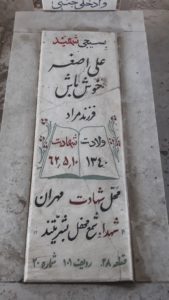 بسیجی شهید
علی اصغر
خوش باش
فرزند مراد
ولادت شهادت
۱۳۴۰ ۶۲,۵,۱۰
محل شهادت مهران
شهداء شمع محفل بشریتند
قطعه ۲۸ ردیف ۱۰۱ شماره ۲۰